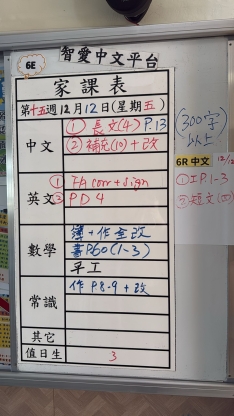 6E
智愛中文平台
家課表
第十五週12月12日(星期五)
中文
① 長文(4) P.13
② 補充(10)+改
英文
① FA corr + sign
② PD 4
數學
簿+作全改
書P60(1-3)
平工
常識
作P8-9+改
其它
值日生
3
(300字
以上)
6R 中文 12/12
① 工P.1-3
② 短文(四)